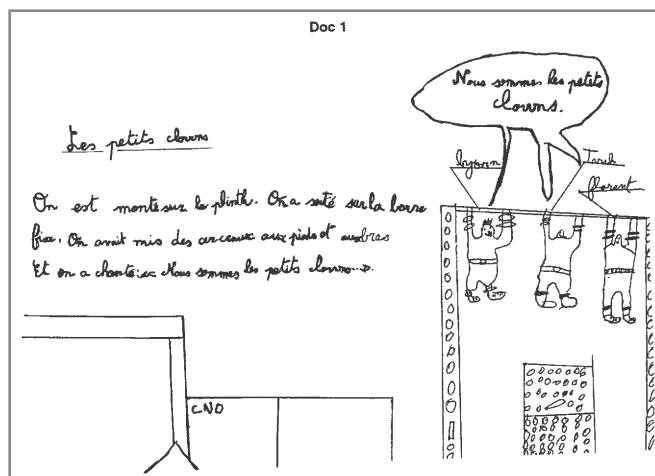 Doc 1
Nous sommes les petits
clowns.
Les petits clowns
Tarek
florent
On est monté sur le plinth. On a sauté sur la barre
fixe. On avait mis des arceaux aux pieds et aux bras
Et on a chanté: « Nous sommes les petits clowns...».